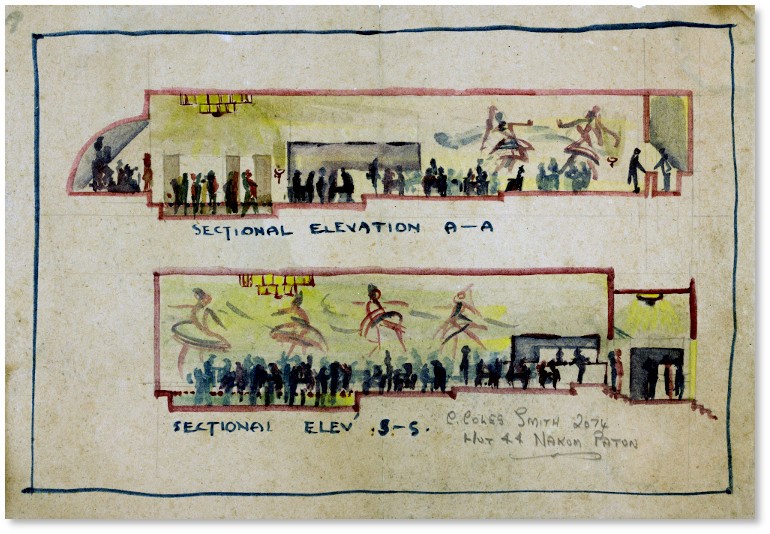 SECTIONAL ELEVATION A-A
SECTIONAL ELEV. S-S.
C. COLES SMITH 2074
HUT 44 NAKOM PATON